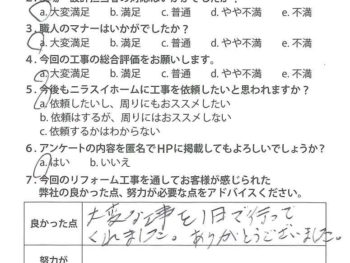 a.大変満足 b.満足 c.普通 d.やや不満 e.不満
3.職人のマナーはいかがでしたか?
a.大変満足 b.満足 c.普通 d.やや不満 e.不満
4.今回の工事の総合評価をお願いします。
a.大変満足 b.満足 c.普通 d.やや不満 e.不満
5.今後もニラスイホームに工事を依頼したいと思われますか?
a.依頼したいし、周りにもおススメしたい
b.依頼はするが、周りにはおススメしない
c.依頼するかはわからない
6.アンケートの内容を匿名でHPに掲載してもよろしいでしょうか?
a.はい b.いいえ
7.今回のリフォーム工事を通してお客様が感じられた
弊社の良かった点、努力が必要な点をアドバイスください。
良かった点 大変な工事を1日で行って
くれました。ありがとうございました。
努力が